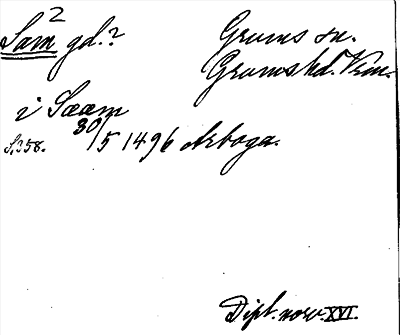 Sam² gd.?
Grums sn.
Grums hd. Vrm.
i Sæam
S. 358. 30/5 1496 Arboga.
Dipl. norv. XVI.